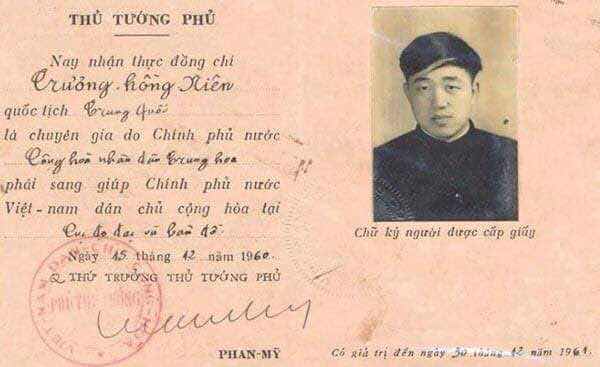 THỦ TƯỚNG PHỦ
Nay nhận thực đồng chí
Trương hồng Niên
quốc tịch Trung Quốc
là chuyên gia do Chính phủ nước
Cộng hoà nhân dân Trung hoa
phái sang giúp Chính phủ nước
Việt-nam dân chủ cộng hòa tại
Cục đo đạc và bản đồ
Ngày 15 tháng 12 năm 1960
Q THỨ TRƯỞNG THỦ TƯỚNG PHỦ
PHAN-MỸ
VIỆT NAM DÂN CHỦ CỘNG HÒA
Chữ ký người được cấp giấy
Có giá trị đến ngày 30 tháng 12 năm 1961